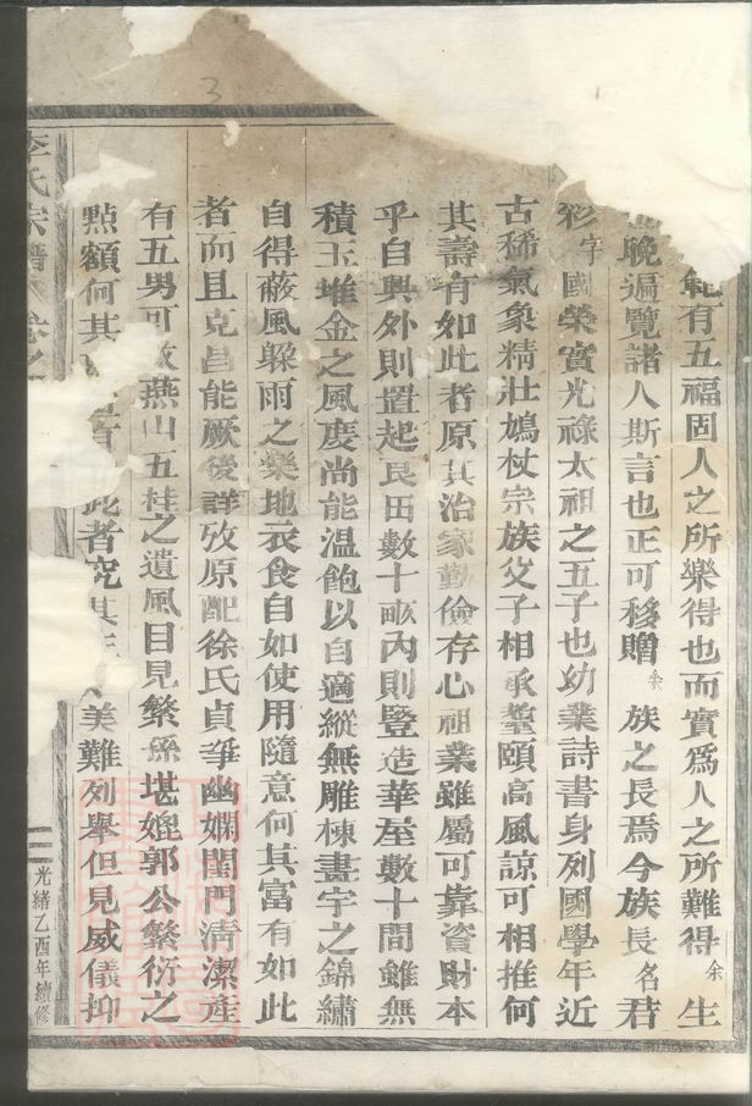 範有五福固人之所樂得也而實爲人之所難得余生
晚遍覽諸人斯言也正可移贈余族之長焉今族長名君
彩字國榮實光祿太祖之五子也幼業詩書身列國學年近
古稀氣象精壯鳩杖宗族父子相承鞏頤高風諒可相推何
其壽有如此者原其治家勤儉存心祖業雖屬可靠資財本
乎自興外則置起良田數十畝內則豎造華屋數十間雖無
積玉堆金之風度尚能溫飽以自適縱無雕棟畫宇之錦繡
自得蔽風躲雨之樂地衣食自如使用隨意何其富有如此
者而且克昌能厥後詳攷原配徐氏貞爭幽嫻閨門清潔產
有五男可效燕山五桂之遺風目見繁孫堪媲郭公繁衍之
點額何其此者究其美難列舉但見威儀抑
李氏宗譜卷之
三
光緒乙酉年續修
3